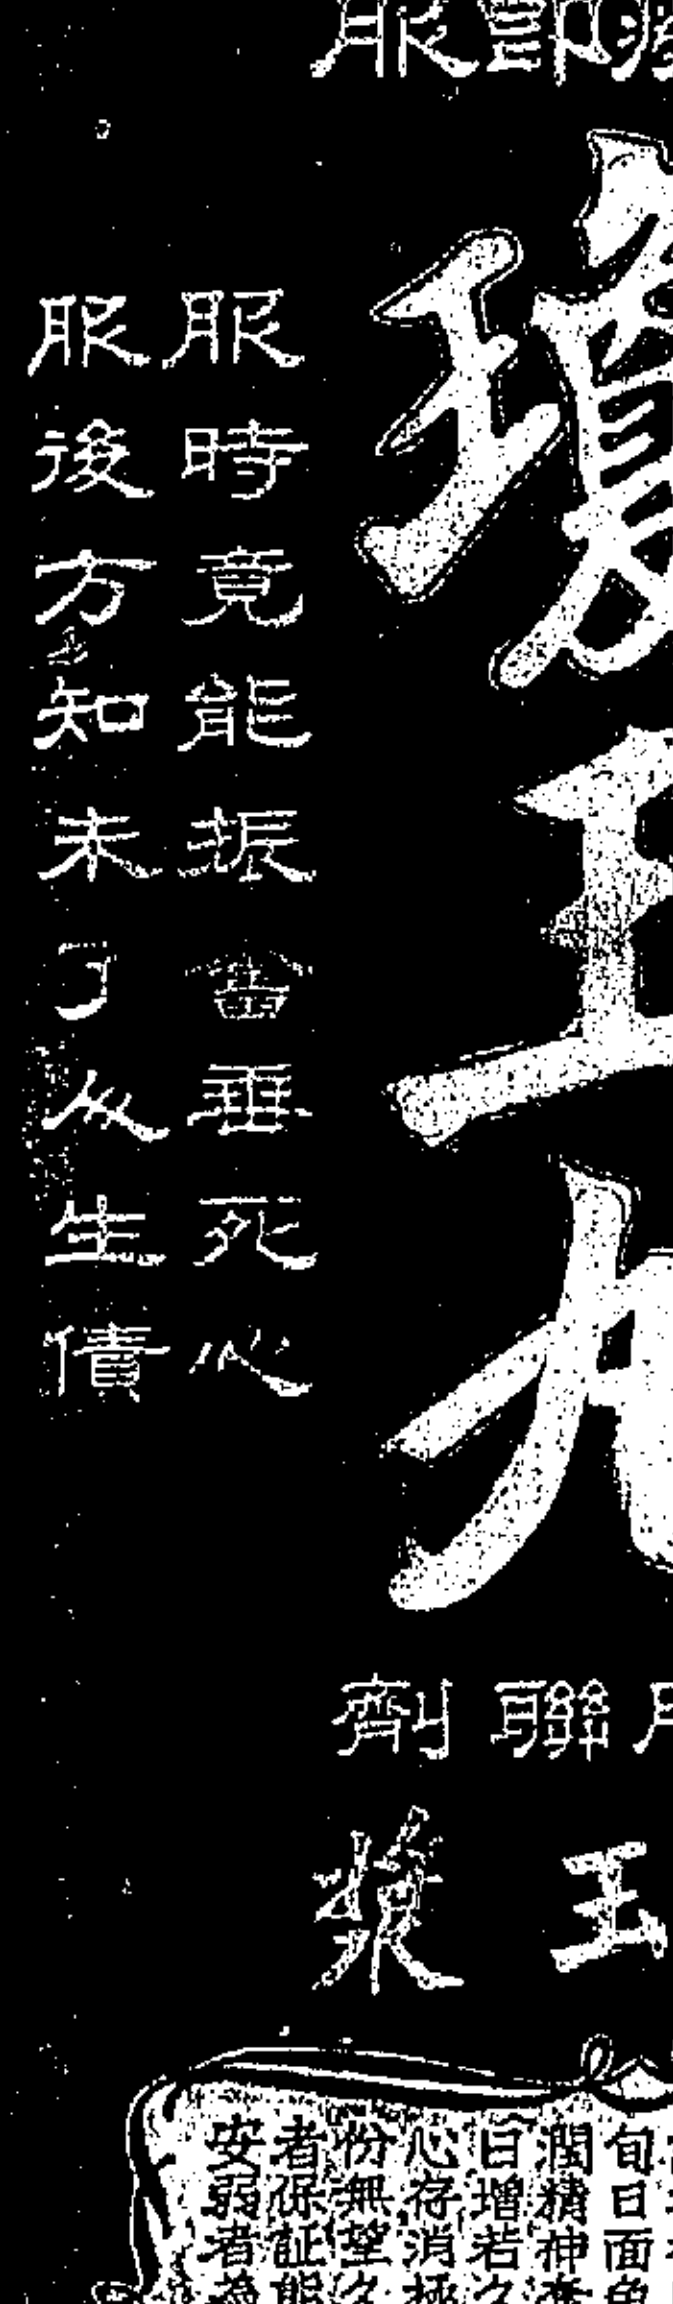 即服
瓊
服時竟能振奮垂死心
服後方知未了人生債
聯劑
玉漿
旬日面色
潤精神
日增若久
心存消極
份無望久
者保証能
安弱者為